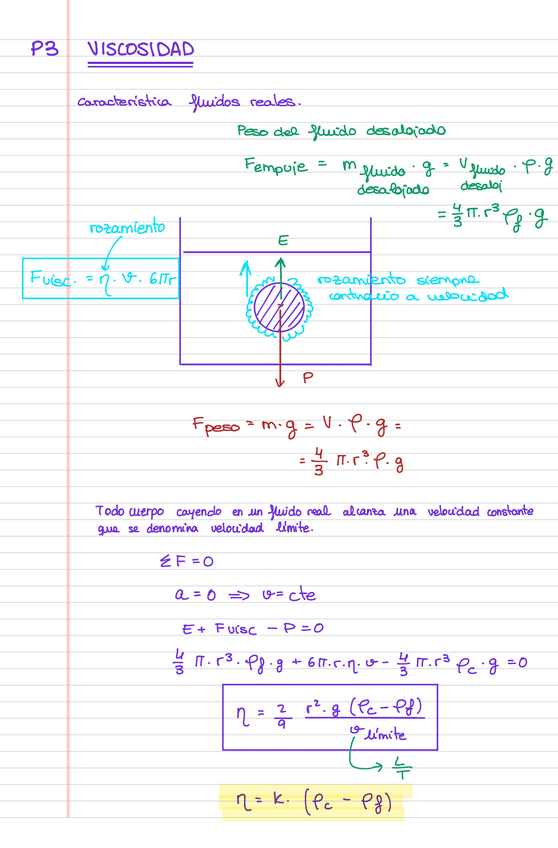 P3 VISCOSIDAD
Característica fluidos reales.
Peso del fluido desalojado
Fempuje = m fluido desalojado · g = V fluido desaloj · ρ · g
= 4/3 π · r³ ρf · g
rozamiento
Fvisc. = η · v · 6πr
E
rozamiento siempre
contrario a velocidad
P
Fpeso = m · g = V · ρ · g =
= 4/3 π · r³ · ρ · g
Todo cuerpo cayendo en un fluido real alcanza una velocidad constante
que se denomina velocidad límite.
ΣF = 0
a = 0 ⇒ v = cte
E + Fvisc − P = 0
4/3 π · r³ · ρf · g + 6π · r · η · v − 4/3 π · r³ ρc · g = 0
η = 2/9 r² · g (ρc − ρf) / v límite
L/T
η = K · (ρc − ρf)